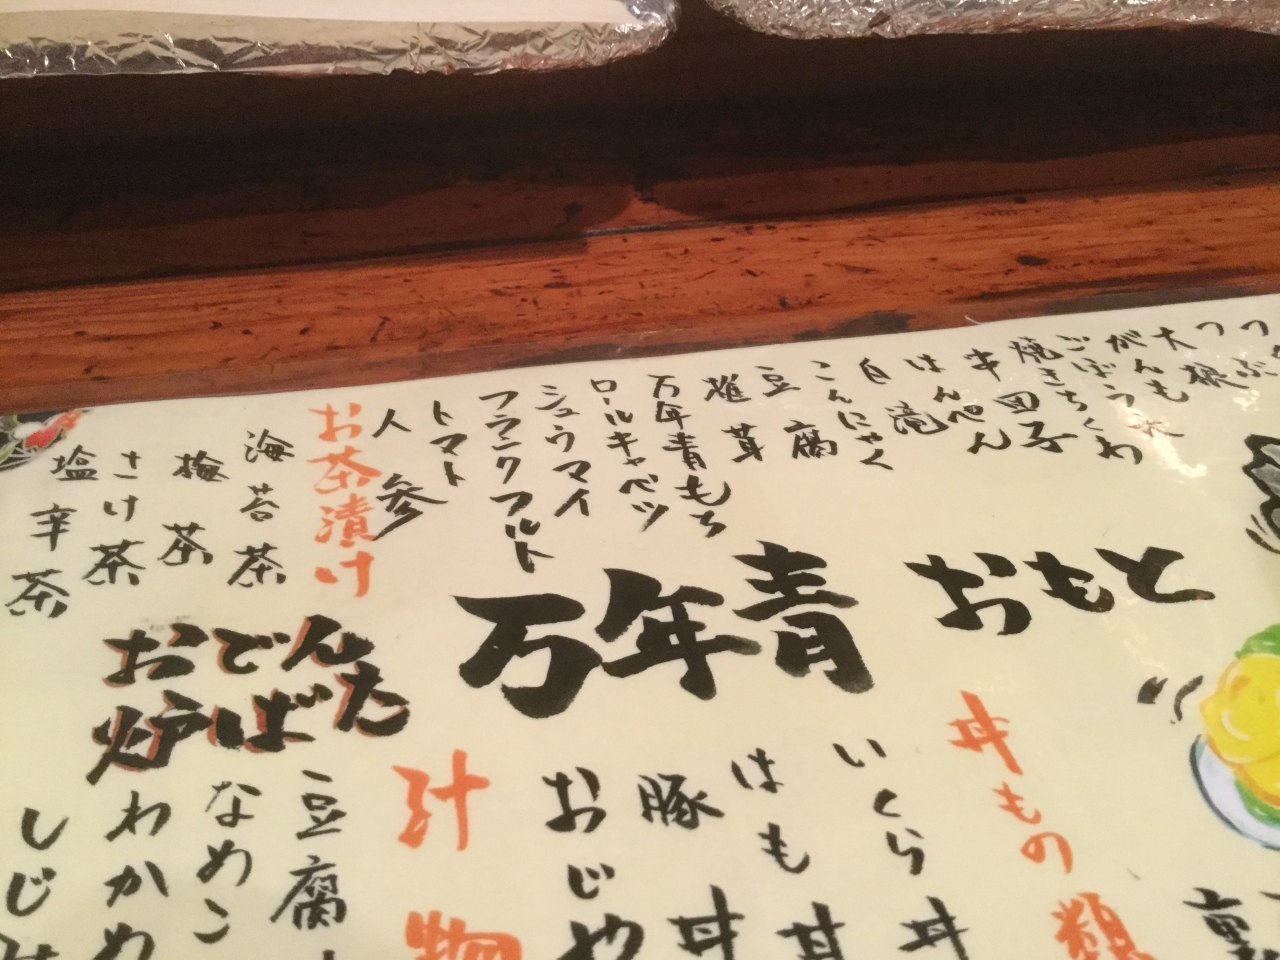 大根
がんも
ごぼう
焼きちくわ
串団子
はんぺん
白滝
こんにゃく
豆腐
椎茸
万年青もち
ロールキャベツ
シュウマイ
フランクフルト
トマト
人参
お茶漬け
海苔茶
梅茶
さけ茶
塩辛茶
おもと
万年青
おでん
炉ばた
丼もの類
いくら丼
はも丼
豚丼
おじや
汁物
豆腐
なめこ
わかめ
しじみ